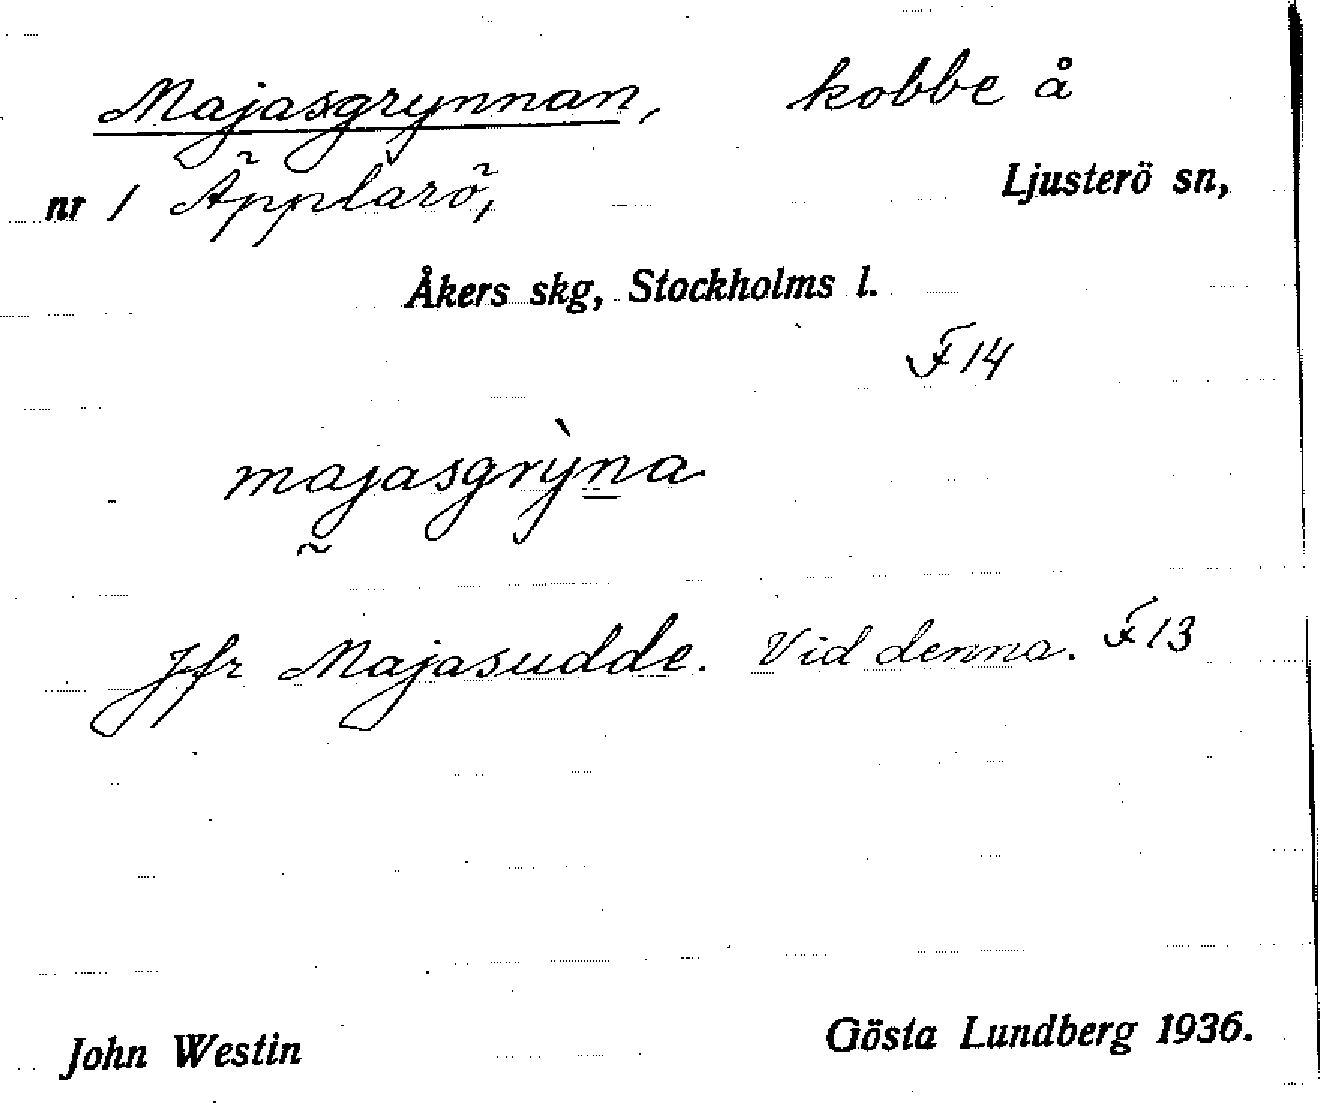 Majasgrynnan, kobbe å
nr 1 Äpplarö, Ljusterö sn,
Åkers skg, Stockholms l.
F 14
majasgrỳna
Jfr Majasudde. Vid denna. F 13
John Westin Gösta Lundberg 1936.